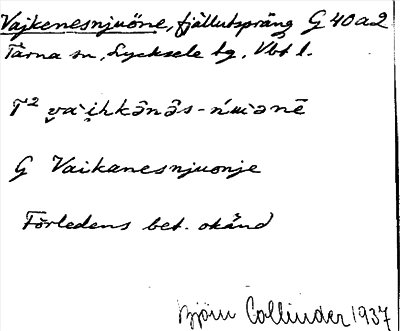 Vajkenesnjuöne, fjällutspräng G 40 a 2
Tärna sn, Lycksele lg, Vbt l.
T²
G Vaikanesnjuonje
Förledens bet. okänd
Björn Collinder 1937